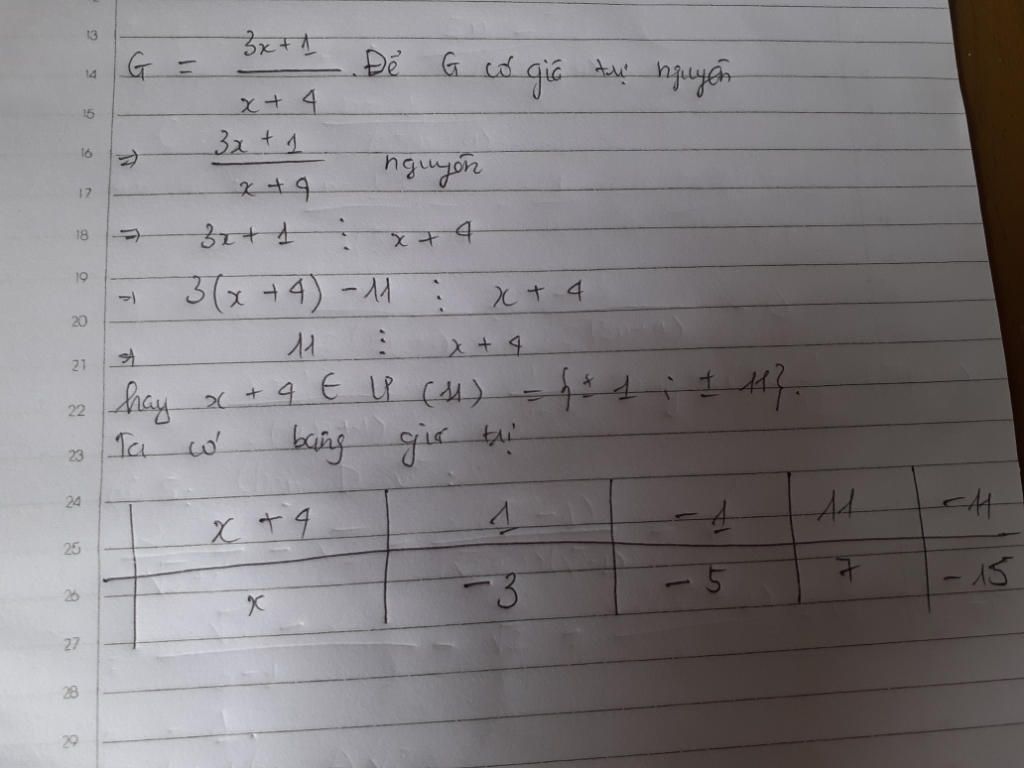 13
G = (3x+1)/(x+4). Để G có giá trị nguyên
14
15
16
⇒ (3x+1)/(x+4) nguyên
17
18 ⇒ 3x+1 ⋮ x+4
19
⇒ 3(x+4) -11 ⋮ x+4
20
21 ⇒ 11 ⋮ x+4
22 hay x+4 ∈ Ư(11) = {±1; ±11}.
23 Ta có bảng giá trị
24 x+4 1 -1 11 -11
25
26 x -3 -5 7 -15
27
28
29